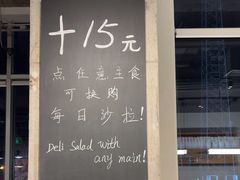 +15元
点任意主食
可换购
每日沙拉!
Deli Salad with
any main!